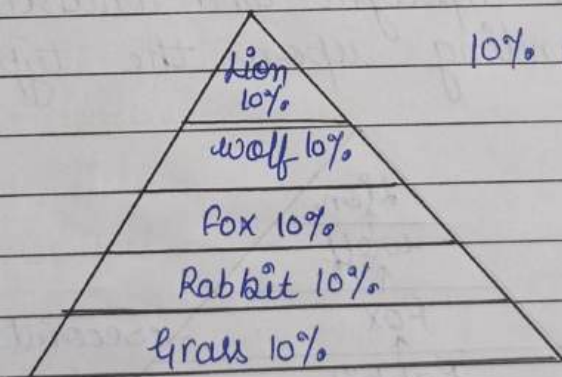 10%
Lion
10%
wolf 10%
Fox 10%
Rabbit 10%
Grass 10%